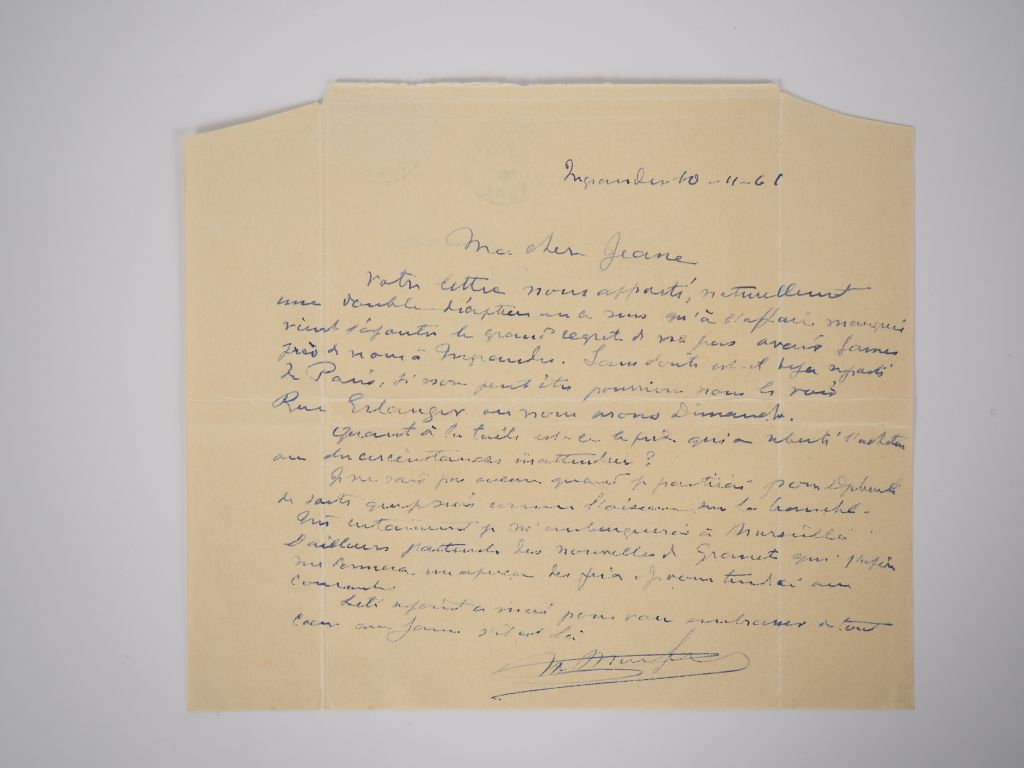 Ingrandes 10-11-61
Ma cher Jeane
Votre lettre nous apporté, naturellement
une double déception en ce sens qu'à l'affaire manquée
vient s'ajouter le grand regret de ne pas avoir James
près de nous à Ingrandes. Sans doute est-il déjà reparti
de Paris, si non peut être pourrions nous le voir
Rue Erlanger où nous serons Dimanche.
Quant à la toile est-ce le prix qui a rebuté l'acheteur
ou des circonstances inattendues ?
Je ne sais pas encore quand je partirai pour
de sorte que je suis comme l'oiseau sur la branche.
je m'embarquerai à Marseille.
D'ailleurs j'attends des nouvelles de Granet qui
me donnera un aperçu des prix. Je vous tiendrai au
courant.
se joint a moi pour vous embrasser de tout
Coeur James s'il est là